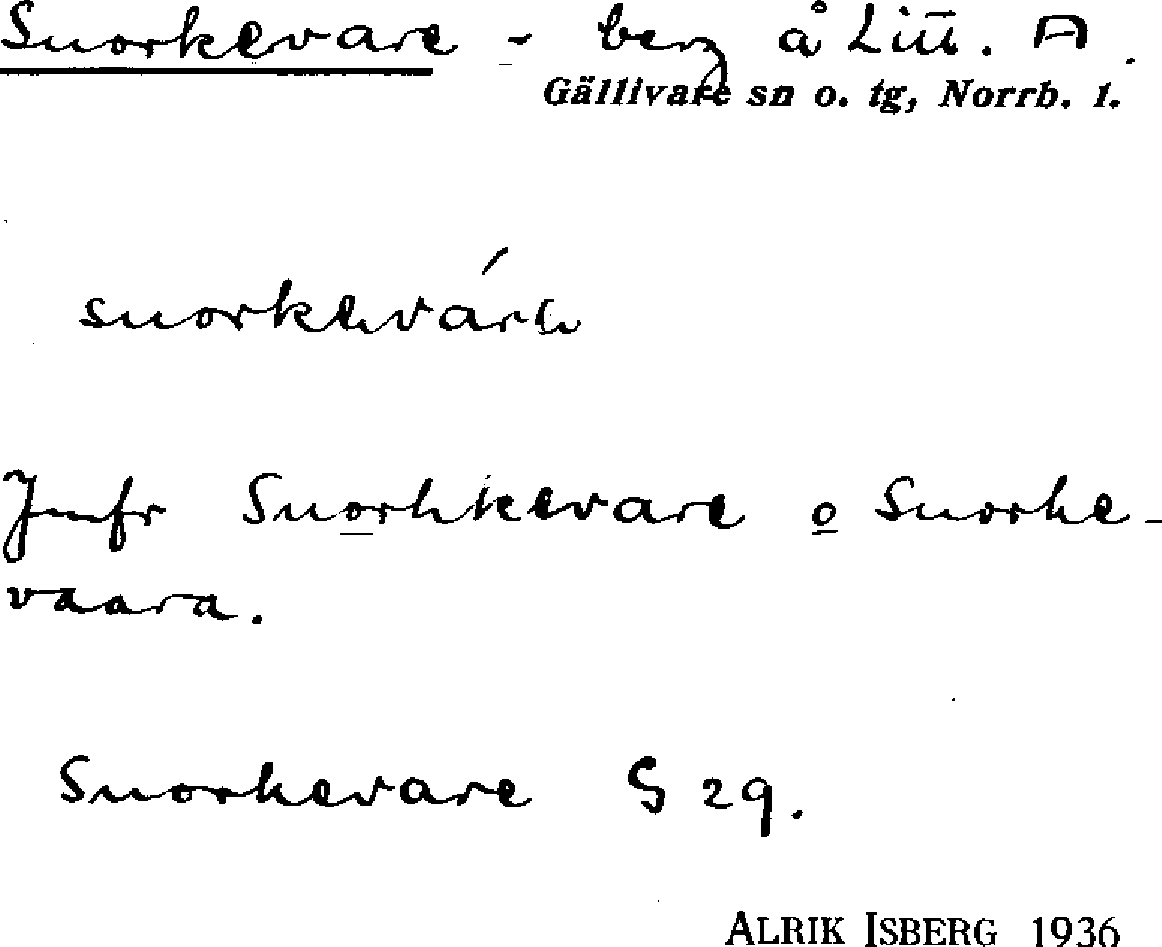 Snorkevare - berg å Litt. A.
Gällivare sn o. tg, Norrb. l.
Jmfr Snorhkevare o Snorke-
vaara.
Snorkevare S 29.
ALRIK ISBERG 1936